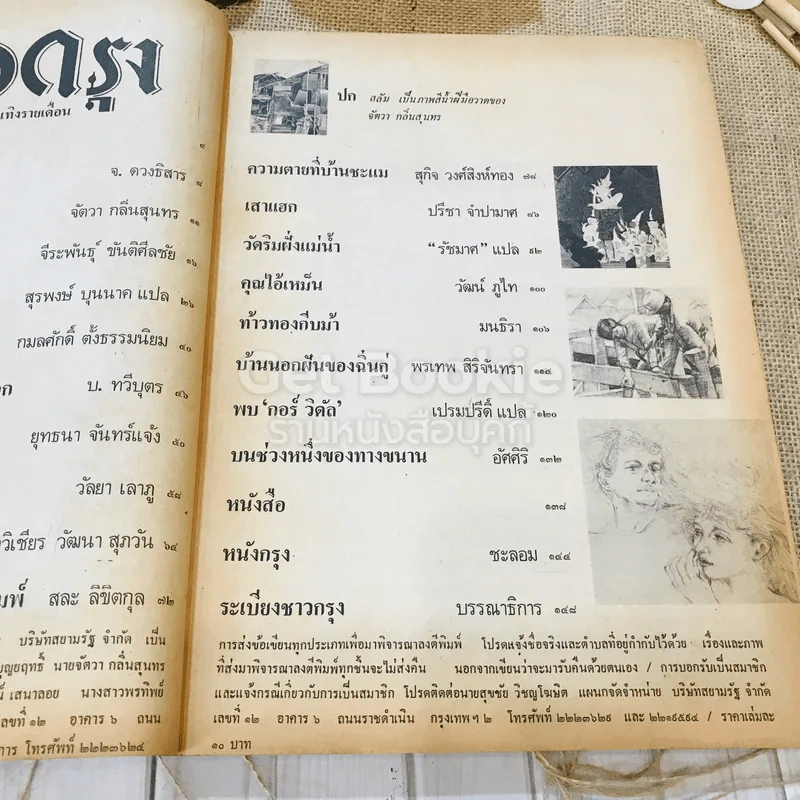 จ. ดวงธิสาร ๘
จัตวา กลิ่นสุนทร ๑๑
จีระพันธุ์ ขันติศีลชัย ๑๖
สุรพงษ์ บุนนาค แปล ๒๖
กมลศักดิ์ ตั้งธรรมนิยม ๔๐
บ. ทวีบุตร ๔๖
ยุทธนา จันทร์แจ้ง ๕๐
วัลยา เลาภู ๕๘
วิเชียร วัฒนา สุภวัน ๖๔
สละ ลิขิตกุล ๗๒
บริษัทสยามรัฐ จำกัด เป็น
นายจัตวา กลิ่นสุนทร
เสนาลอย นางสาวพรทิพย์
เลขที่ ๑๒ อาคาร ๖ ถนน
โทรศัพท์ ๒๒๒๓๖๒๔
ปก สลัม เป็นภาพสีน้ำฝีมือวาดของ
จัตวา กลิ่นสุนทร
ความตายที่บ้านชะแม สุกิจ วงศ์สิงห์ทอง ๗๘
เสาแฮก ปรีชา จำปามาศ ๘๖
วัดริมฝั่งแม่น้ำ “รัชมาศ” แปล ๙๒
คุณไอ้เหม็น วัฒน์ ภูไท ๑๐๐
ท้าวทองกีบม้า มนธิรา ๑๐๖
บ้านนอกฝันของฉิ่นกู่ พรเทพ สิริจันทรา ๑๑๔
พบ ‘กอร์ วิดัล’ เปรมปรีดิ์ แปล ๑๒๐
บนช่วงหนึ่งของทางขนาน อัศศิริ ๑๓๒
หนังสือ ๑๓๘
หนังกรุง ชะลอม ๑๔๔
ระเบียงชาวกรุง บรรณาธิการ ๑๔๘
การส่งข้อเขียนทุกประเภทเพื่อมาพิจารณาลงตีพิมพ์ โปรดแจ้งชื่อจริงและตำบลที่อยู่กำกับไว้ด้วย เรื่องและภาพ
ที่ส่งมาพิจารณาลงตีพิมพ์ทุกชิ้นจะไม่ส่งคืน นอกจากเขียนว่าจะมารับคืนด้วยตนเอง / การบอกรับเป็นสมาชิก
และแจ้งกรณีเกี่ยวกับการเป็นสมาชิก โปรดติดต่อนายสุขชัย วิชญโฆษิต แผนกจัดจำหน่าย บริษัทสยามรัฐ จำกัด
เลขที่ ๑๒ อาคาร ๖ ถนนราชดำเนิน กรุงเทพฯ ๒ โทรศัพท์ ๒๒๒๓๖๒๙ และ ๒๒๑๙๕๙๔ / ราคาเล่มละ
๑๐ บาท
Get Bookie
ร้านหนังสือบุคกี้